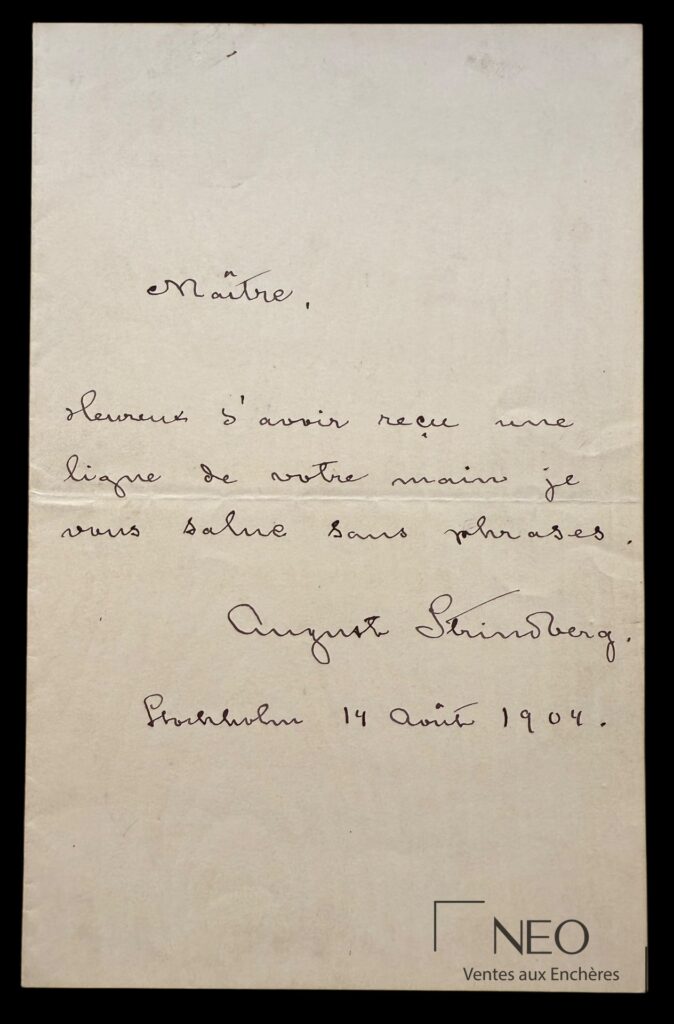 Maître,
Heureux d'avoir reçu une
ligne de votre main je
vous salue sans phrases.
August Strindberg.
Stockholm 14 Août 1904.
NEO
Ventes aux Enchères